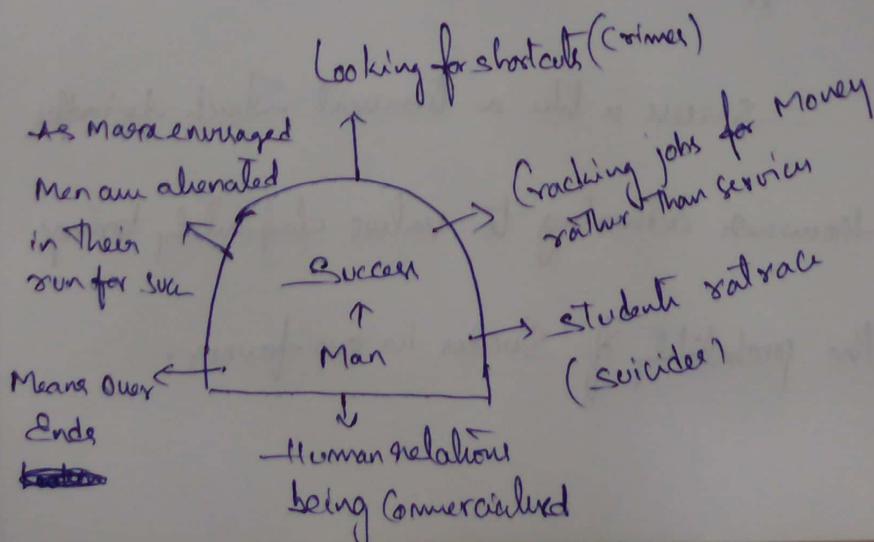 Looking for shortcuts (Crimes)
As Marx envisaged
Men are alienated
in their
run for succ
Cracking jobs for Money
rather than services
Success
↑
Man
Students ratrace
(suicides)
Means Over
Ends
Human relations
being Commercialised